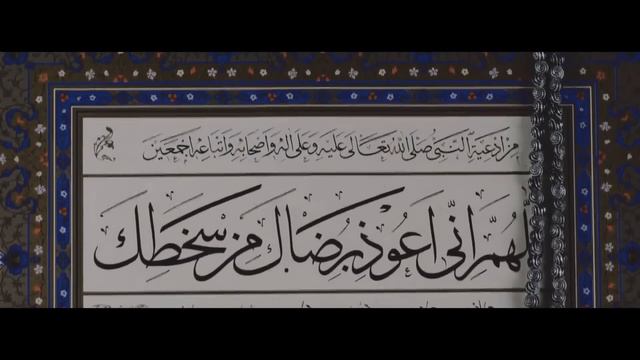 من ادعية النبى صلى الله تعالى عليه وعلى اله واصحابه واتباعه اجمعين
اللهم انى اعوذ برضاك من سخطك